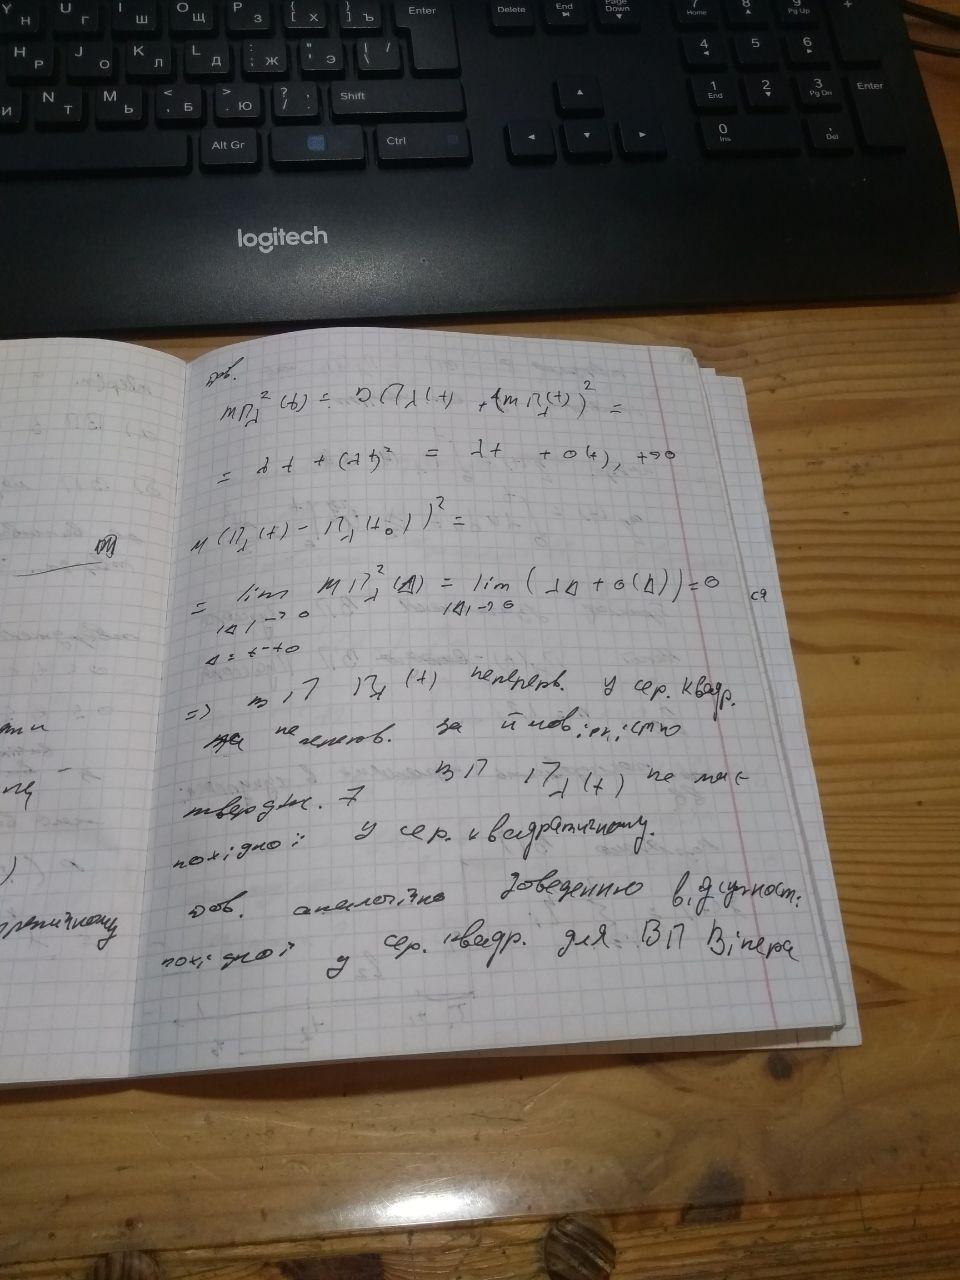 Y Н U Г I Ш O Щ P З { [ Х } ] Ъ Enter Delete End Page Down 7 Home 8 9 Pg Up +
H Р J О K Л L Д : ; Ж " ' Э | / \ 4 5 6
И N Т M Ь < , Б > . Ю ? / : . Shift 1 End 2 3 Pg Dn Enter
Alt Gr Ctrl 0 Ins , Del
logitech
Дов.
MΠ_λ²(t) = DΠ_λ(t) + (MΠ_λ(t))² =
= λt + (λt)² = λt + o(t), t→0
M(Π_λ(t) - Π_λ(t₀))² =
= lim MΠ_λ²(Δ) = lim (λΔ + o(Δ)) = 0
|Δ|→0 |Δ|→0
Δ = t-t₀
ся
=> ВП Π_λ(t) неперерв. у сер. квадр.
та неперерв. за ймовірністю
твердж. 7 ВП Π_λ(t) не має
похідної у сер. квадратичному.
Дов. аналогічно доведенню відсутності
похідної у сер. квадр. для ВП Вінера